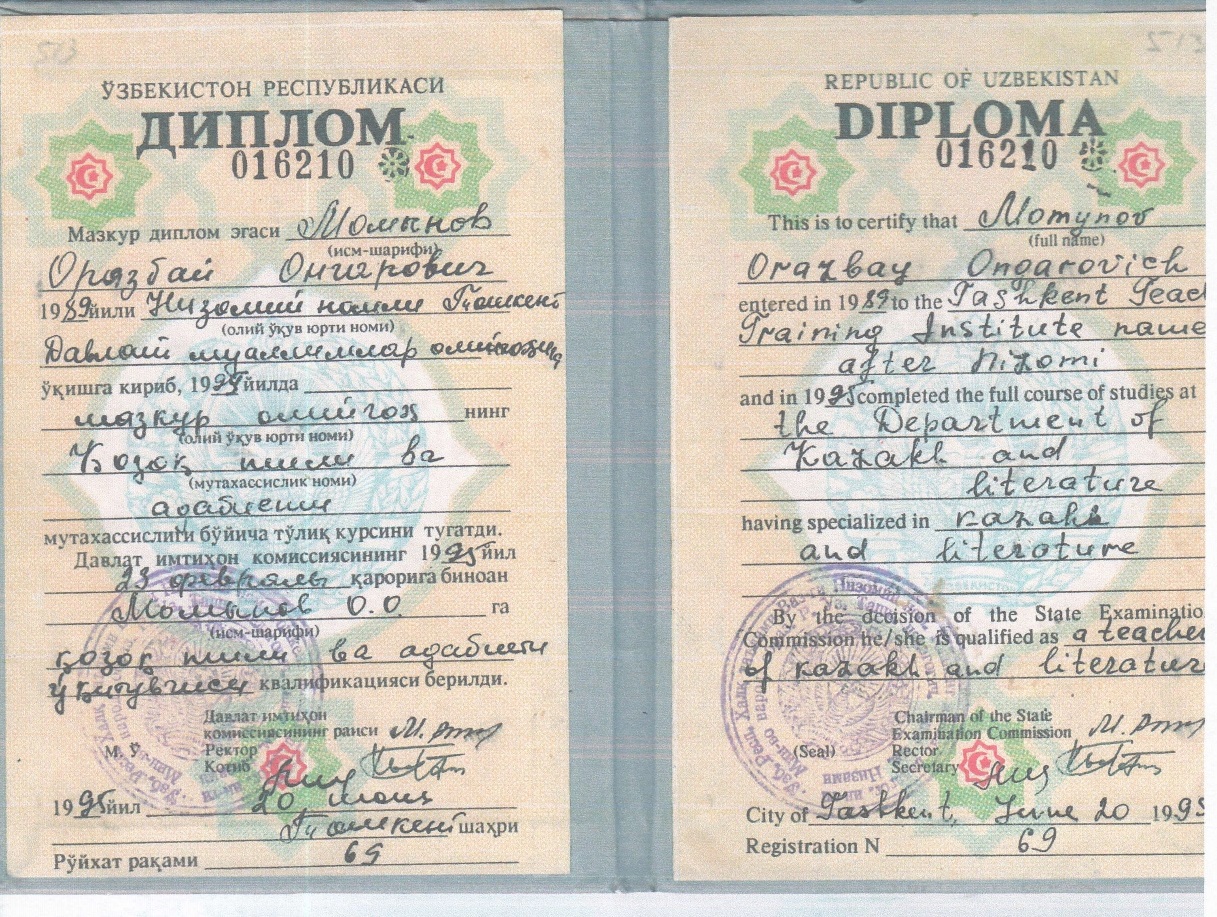 ЎЗБЕКИСТОН РЕСПУБЛИКАСИ
ДИПЛОМ
016210
Мазкур диплом эгаси Момынов
(исм-шарифи)
Оразбай Онгарович
1989йили Низомий номли Тошкент
(олий ўқув юрти номи)
Давлат муаллимлар олийгоҳига
ўқишга кириб, 1995йилда
мазкур олийгоҳ нинг
(олий ўқув юрти номи)
Қозоқ тили ва
(мутахассислик номи)
адабиети
мутахассислиги бўйича тўлиқ курсини тугатди.
Давлат имтиҳон комиссиясининг 1995йил
23 февраль қарорига биноан
Момынов О.О. га
(исм-шарифи)
қозоқ тили ва адабиети
ўқитувчиси квалификацияси берилди.
Давлат имтиҳон
комиссиясининг раиси
М. Ў. Ректор
Котиб
1995йил 20 июнь
Тошкент шаҳри
Рўйхат рақами 69
REPUBLIC OF UZBEKISTAN
DIPLOMA
016210
This is to certify that Momynov
(full name)
Orazbay Ongarovich
entered in 1989 to the Tashkent Teac
Training Institute name
after Nizomi
and in 1995 completed the full course of studies at
the Department of
Kazakh and
literature
having specialized in kazakh
and literature
By the decision of the State Examinatio
Commission he/she is qualified as a teacher
of kazakh and literatur
Chairman of the State
Examination Commission
(Seal) Rector
Secretary
City of Tashkent, June 20 1995
Registration N 69